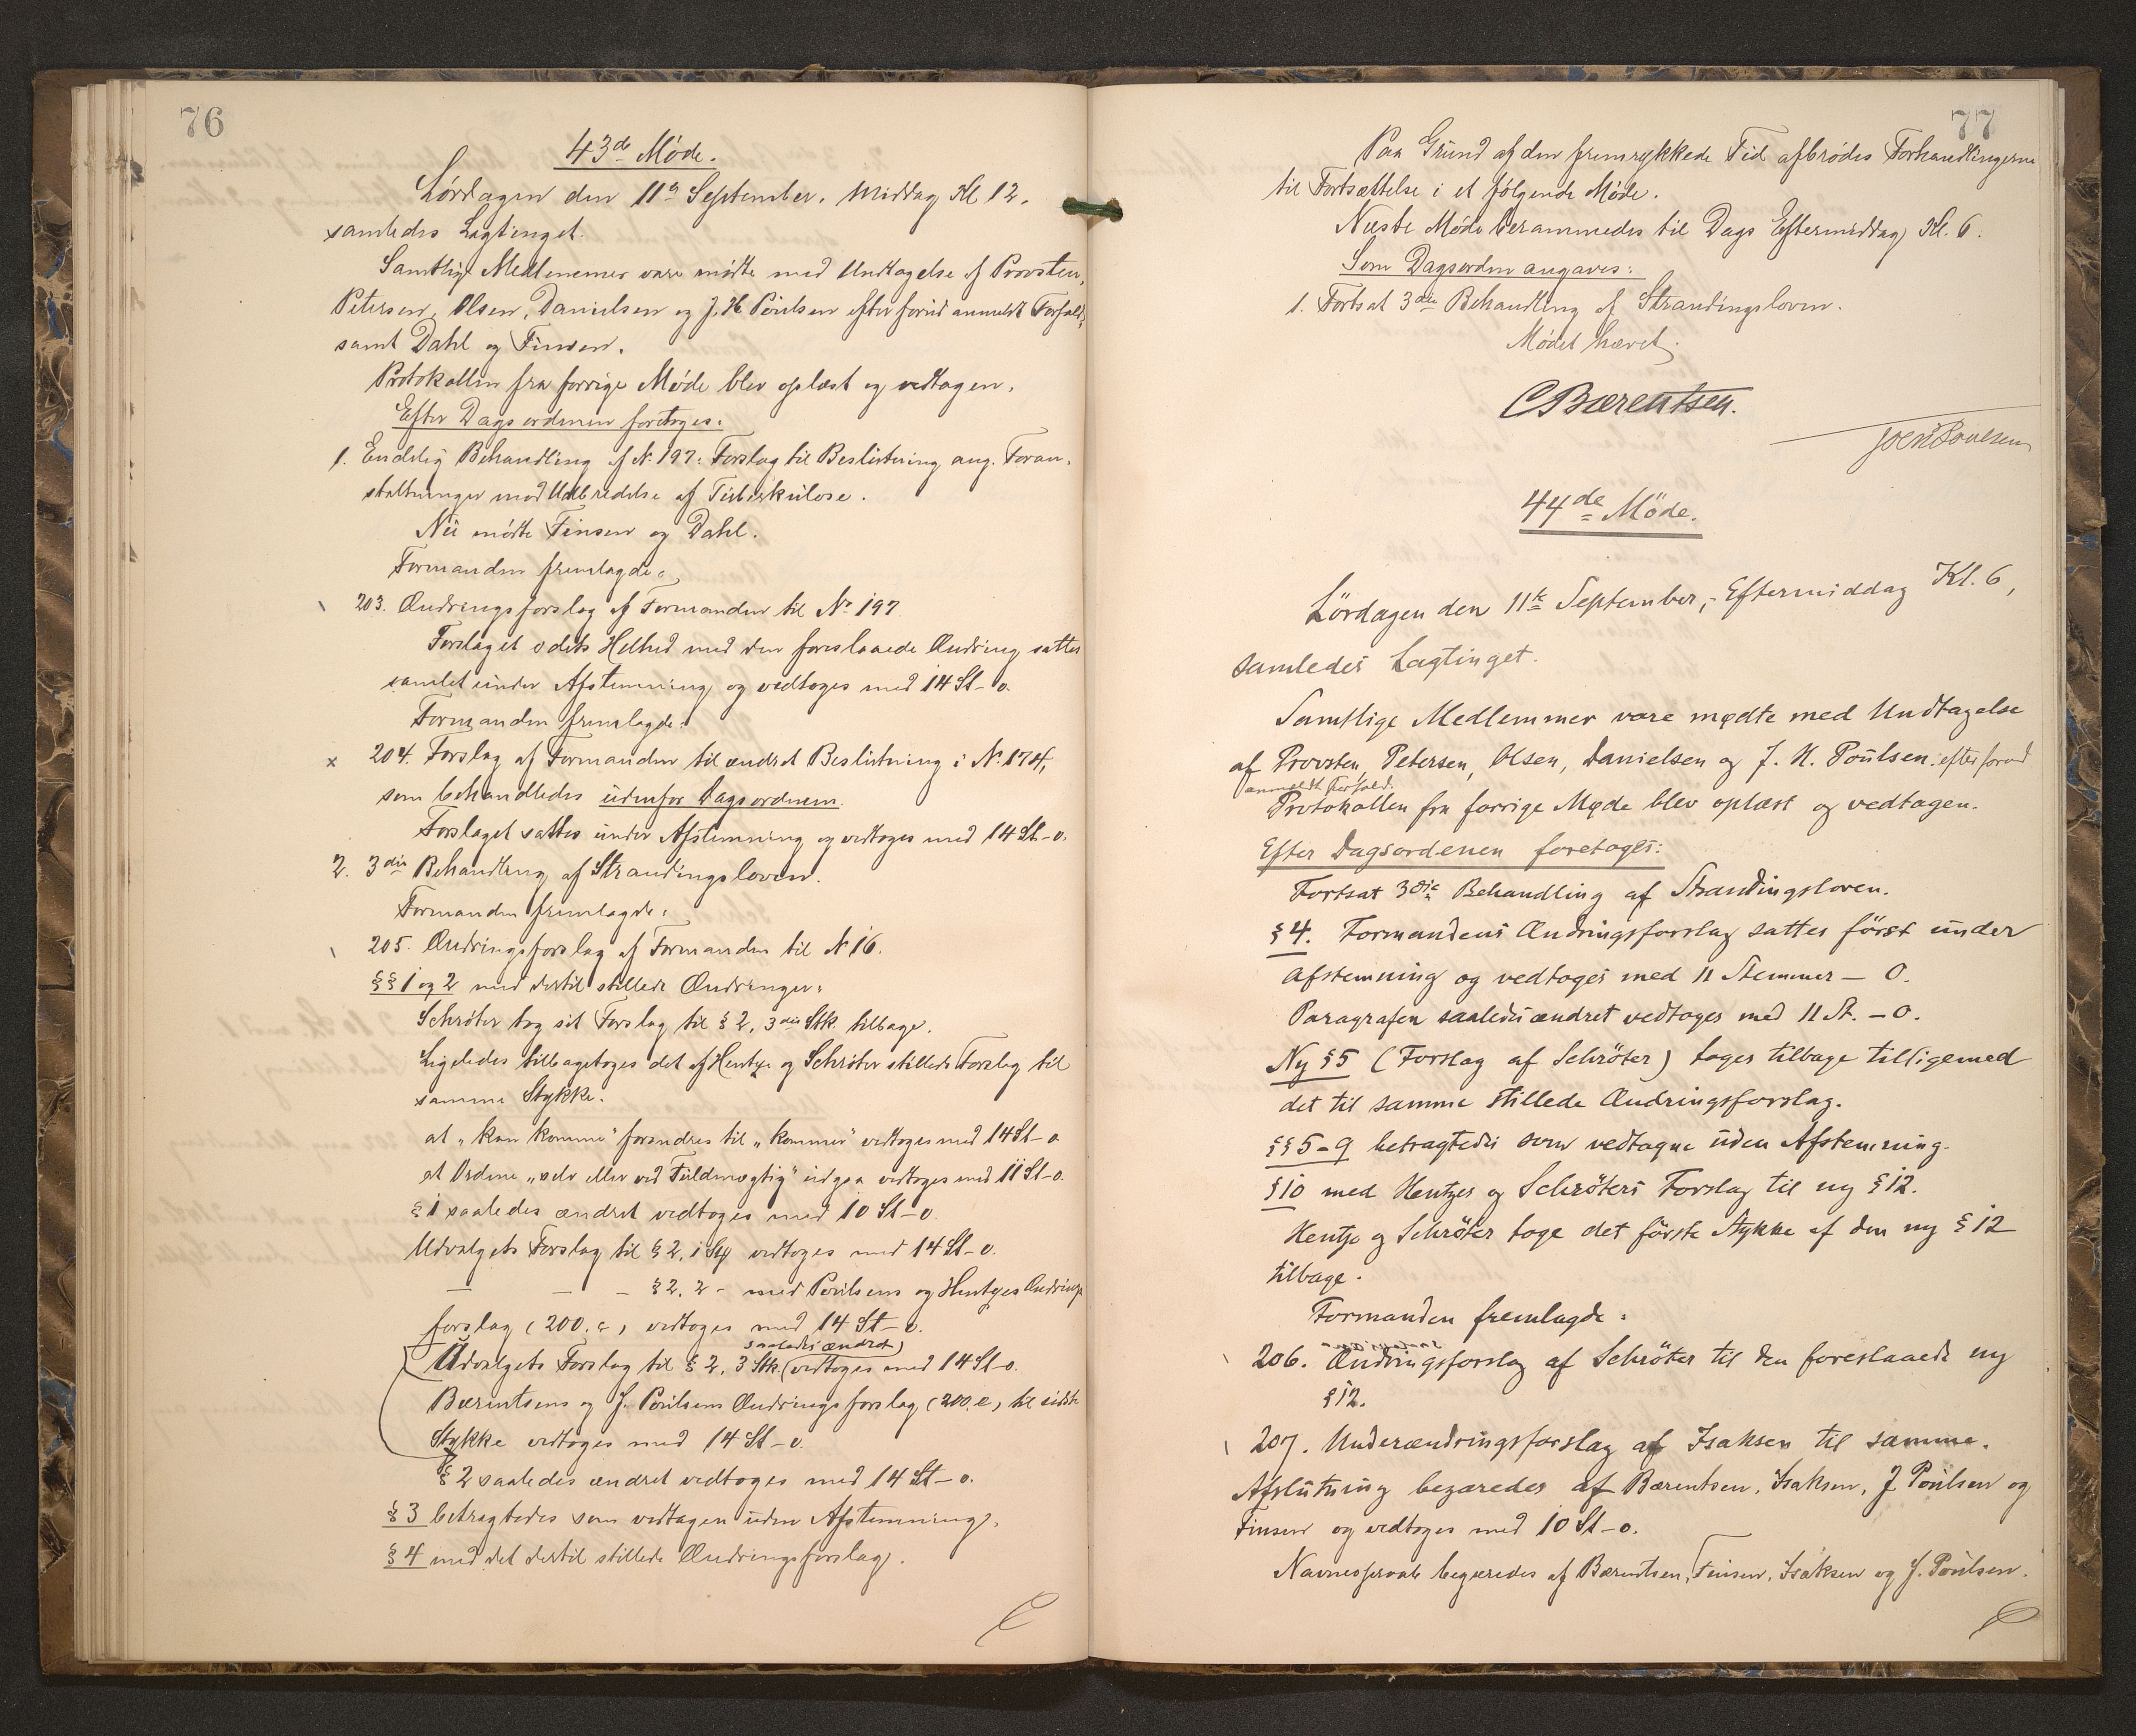 76
43de Møde.
Lørdagen den 11te September, Middag Kl 12.
samledes Lagtinget.
Samtlige Medlemmer vare mødte med Undtagelse af Provsten,
Petersen, Olsen, Danielsen og J. H. Poulsen efter forud anmeldt Forfald,
samt Dahl og Finsen.
Protokollen fra forrige Møde blev oplæst og vedtagen.
Efter Dagsordenen foretoges:
1. Endelig Behandling af No 197: Forslag til Beslutning ang. Foran-
staltninger mod Udbredelse af Tuberkulose.
Nu mødte Finsen og Dahl.
Formanden fremlagde:
203. Ændringsforslag af Formanden til No 197.
Forslaget i dets Helhed med den foreslaaede Ændring sattes
samlet under Afstemning og vedtoges med 14 St - o.
Formanden fremlagde:
x 204. Forslag af Formanden til ændret Beslutning i No. 174,
som behandledes udenfor Dagsordenen.
Forslaget sattes under Afstemning og vedtoges med 14 St - o.
2. 3die Behandling af Strandingsloven.
Formanden fremlagde:
205. Ændringsforslag af Formanden til No 16.
§§ 1 og 2 med dertil stillede Ændringer:
Schrøter tog sit Forslag til § 2, 3die Stk. tilbage.
Ligeledes tilbagetoges det af Hentze og Schrøter stillede Forslag til
samme Stykke.
at „kan komme" forandres til „kommer" vedtoges med 14 St - o
at Ordene „selv eller ved Fuldmægtig" udgaa vedtoges med 11 St - o.
§ 1 saaledes ændret vedtoges med 10 St - o.
Udvalgets Forslag til § 2, 1 Stk vedtoges med 14 St - o.
— — - § 2, 2 - med Poulsens og Hentzes Ændrings
forslag (200. a) vedtoges med 14 St - o.
saaledes ændret)
Udvalgets Forslag til § 2, 3 Stk. (vedtoges med 14 St - o.
Bærentsens og J. Poulsens Ændringsforslag (200. e) til sidste
Stykke vedtoges med 14 St - o.
§ 2 saaledes ændret vedtoges med 14 St - o.
§ 3 betragtedes som vedtagen uden Afstemning.
§ 4 med det dertil stillede Ændringsforslag.
77
Paa Grund af den fremrykkede Tid afbrødes Forhandlingerne
til Fortsættelse i et følgende Møde.
Næste Møde berammedes til Dags Eftermiddag Kl. 6.
Som Dagsorden angaves:
1. Fortsat 3die Behandling af Strandingsloven.
Mødet hævet.
C Bærentsen.
Joen Poulsen
44de Möde.
Lördagen den 11te September, - Eftermiddag Kl. 6,
samledes Lagtinget.
Samtlige Medlemmer vare mødte med Undtagelse
af Provsten, Petersen, Olsen, Danielsen og J. H. Poulsen. efter forud
anmeldt Forfald.
Protokollen fra forrige Møde blev oplæst og vedtagen.
Efter Dagsordenen foretoges:
Fortsat 3die Behandling af Strandingsloven.
§ 4. Formandens Ændringsforslag sattes först under
Afstemning og vedtoges med 11 Stemmer — 0.
Paragrafen saaledes ændret vedtoges med 11 St. - 0.
Ny § 5 (Forslag af Schröter) toges tilbage tilligemed
det til samme stillede Ændringsforslag.
§§ 5-9 betragtedes som vedtagne uden Afstemning.
§ 10 med Hentzes og Schröters Forslag til ny § 12.
Hentze og Schröter toge det förste Stykke af den ny § 12
tilbage.
Formanden fremlagde:
206. Ændringsforslag af Schröter til den foreslaaede ny
§ 12.
207. Underændringsforslag af Isaksen til samme.
Afslutning begæredes af Bærentsen, Isaksen, J Poulsen og
Finsen og vedtoges med 10 St - o.
Navneopraab begæredes af Bærentsen, Finsen, Isaksen og J. Poulsen.